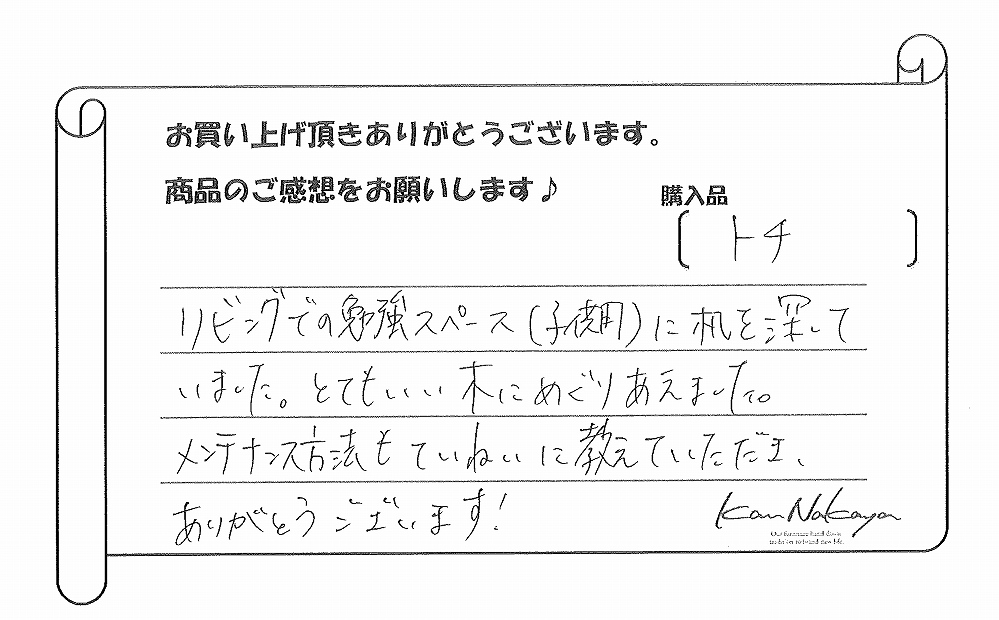 お買い上げ頂きありがとうございます。
商品のご感想をお願いします♪
購入品
〔 トチ 〕
リビングでの勉強スペース(子供用)に机を探して
いました。とてもいい木にめぐりあえました。
メンテナンス方法もていねいに教えていただき、
ありがとうございます!
Kan Nakayan